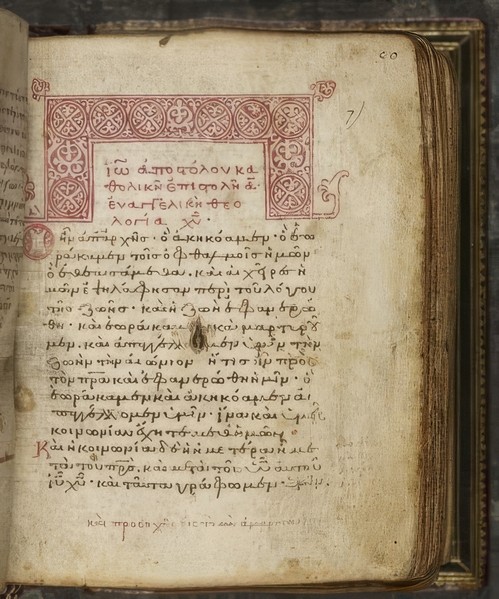 ἰῶ ἀποστόλου κα
θολικὴ ἐπιστολὴ ᾱ·
ἐυαγγελικὴ θεο
λογία χ̅υ̅·
Ὃ ἦν ἀπαρχῆς· ὃ ἀκηκόαμεν· ὃ ἑω
ράκαμεν τοῖσ ὀφθαλμοῖσ ἡμῶν
ὃ ἐθεασάμεθα. καὶ αἱ χεῖρες ἡ
μῶν ἐψηλάφησαν περὶ τοῦ λόγου
τῆσ ζωῆσ· καὶ ἡ ζωὴ ἐφανερώ
θη· καὶ ἑωράκαμεν καὶ μαρτυροῦ
μεν. καὶ ἀπαγγέλλομεν ὑμῖν τὴν
ζωὴν τὴν αἰώνιον· ἥτις ἦν πρὸς
τὸν π̅ρ̅α̅ καὶ ἐφανερώθη ἡμῖν· ὃ
ἑωράκαμεν καὶ ἀκηκόαμεν ἀ
παγγέλλομεν ὑμῖν· ἵνα καὶ ὑμεῖς
κοινωνίαν ἔχητε μεθ ἡμῶν·
Καὶ ἡ κοινωνία δὲ ἡ ἡμετέρα ἡ με
τὰ τοῦ π̅ρ̅ς̅. καὶ μετὰ τοῦ υ̅υ̅ αὐτοῦ
ι̅υ̅ χ̅υ̅· καὶ ταῦτα γράφομεν ὑμῖν·